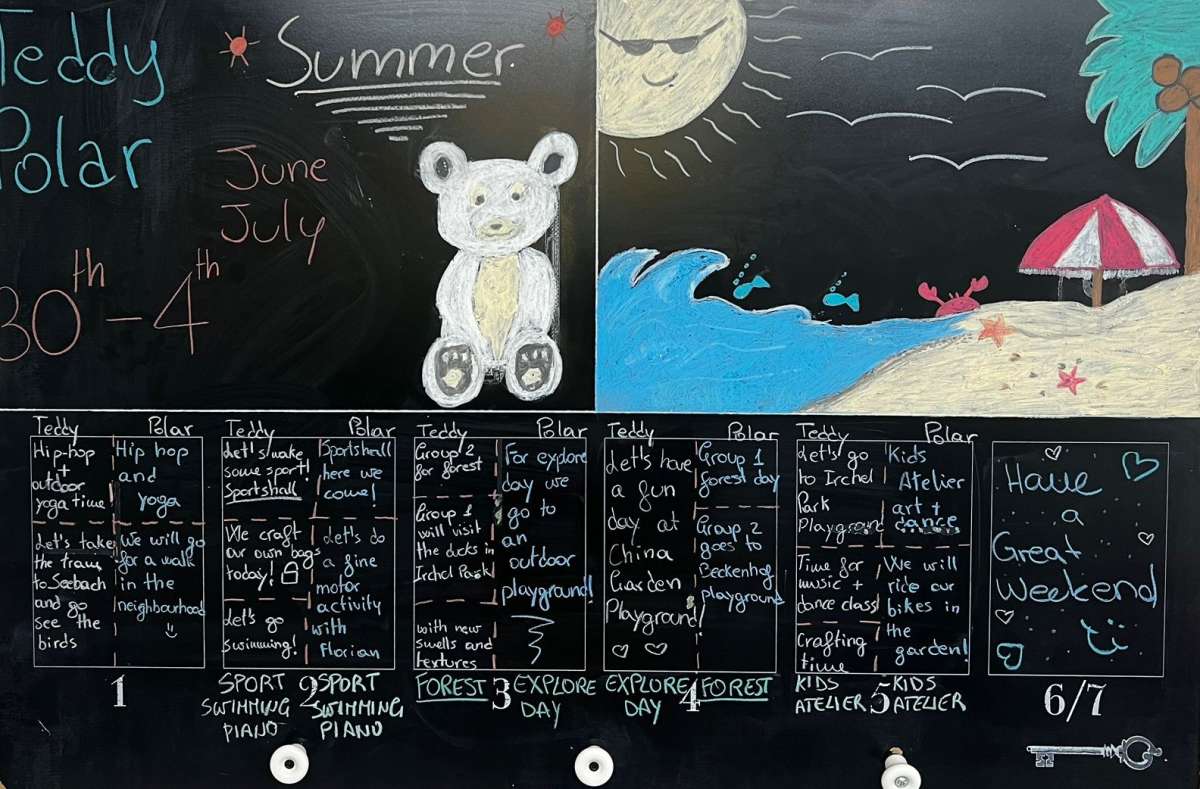 Teddy
Polar
Summer
June
July
30th - 4th
Teddy
Hip-hop
+
outdoor
yoga time!
Let's take
the tram
to Seebach
and go
see the
birds
Polar
Hip hop
and
yoga
We will go
for a walk
in the
neighbourhood
1
Teddy
Let's make
some sport!
Sportshall
We craft
our own bags
today!
Let's go
swimming!
Polar
Sportshall
here we
come!
Let's do
a fine
motor
activity
with
Florian
2
SPORT
SWIMMING
PIANO
SPORT
SWIMMING
PIANO
Teddy
Group 2
for forest
Group 1
will visit
the ducks in
Irchel Park
with new
smells and
textures
Polar
For explore
day we
go to
an
outdoor
playground!
FOREST
3
EXPLORE
DAY
Teddy
Let's have
a fun
day at
China
Garden
Playground!
Polar
Group 1
forest day
Group 2
goes to
Beckenhof
playground
EXPLORE
DAY
4
FOREST
Teddy
Let's go
to Irchel
Park
Playground
Time for
music +
dance class
Crafting
time
Polar
Kids
Atelier
art +
dance
We will
ride our
bikes in
the
garden!
KIDS
ATELIER
5
KIDS
ATELIER
Have
a
Great
Weekend
6/7